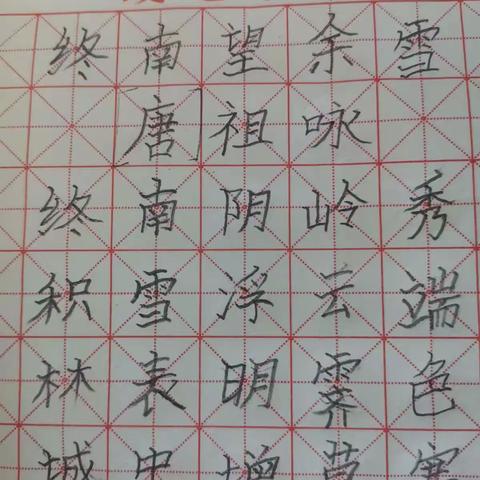 终南望余雪
[唐]祖咏
终南阴岭秀
积雪浮云端
林表明霁色
城中增暮寒